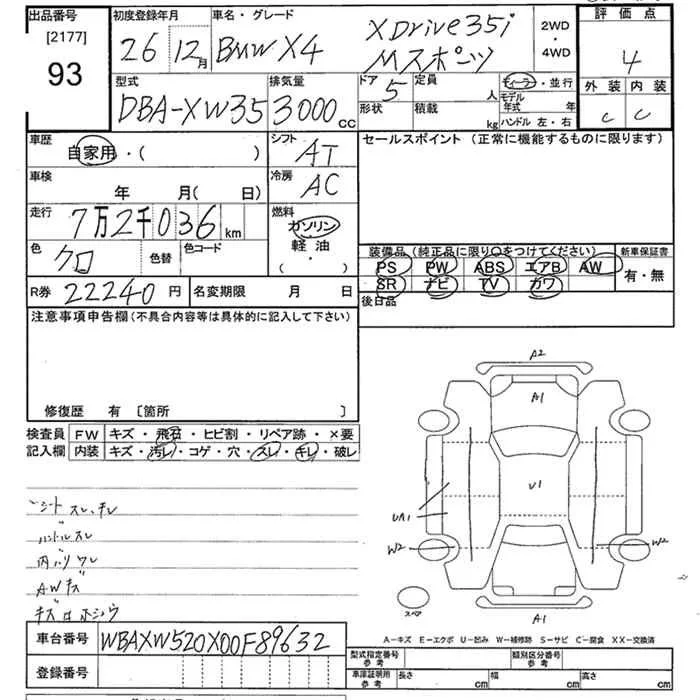 出品番号
[2177]
93
初度登録年月
26 12月
車名・グレード
BMW X4 XDrive35i
Mスポーツ
2WD
・
4WD
評価点
4
外装 内装
C C
型式
DBA-XW35
排気量
3000cc
ドア 5
形状
定員 人
積載 kg
ディーラー・並行
モデル年式 年
ハンドル 左・右
車歴
自家用・( )
シフト
AT
セールスポイント (正常に機能するものに限ります)
車検
年 月(日)
冷房
AC
走行
7万2千036km
燃料
ガソリン
軽油
(・)
色
クロ
色替
色コード
装備品(純正品に限り〇をつけてください)
PS PW ABS エアB AW
SR ナビ TV カワ
新車保証書
有・無
R券 22240円
名変期限 月 日
後日品
注意事項申告欄(不具合内容等は具体的に記入して下さい)
修復歴 有 〔箇所 〕
検査員 FW キズ・飛石・ヒビ割・リペア跡・×要
記入欄 内装 キズ・汚レ・コゲ・穴・スレ・キレ・破レ
シート スレ、キレ
ハンドルスレ
内ハリ ワレ
AWキズ
キズ ロ ホシウ
A2
A1
U1
UA1
W2
W2
スペア
A1
A-キズ E-エクボ U-凹み W-補修跡 S-サビ C-腐食 XX-交換済
車台番号 WBAXW520X00F89632
登録番号
型式指定番号
参考
類別区分番号
参考
車庫証明用
参考
長さ cm
幅 cm
高さ cm